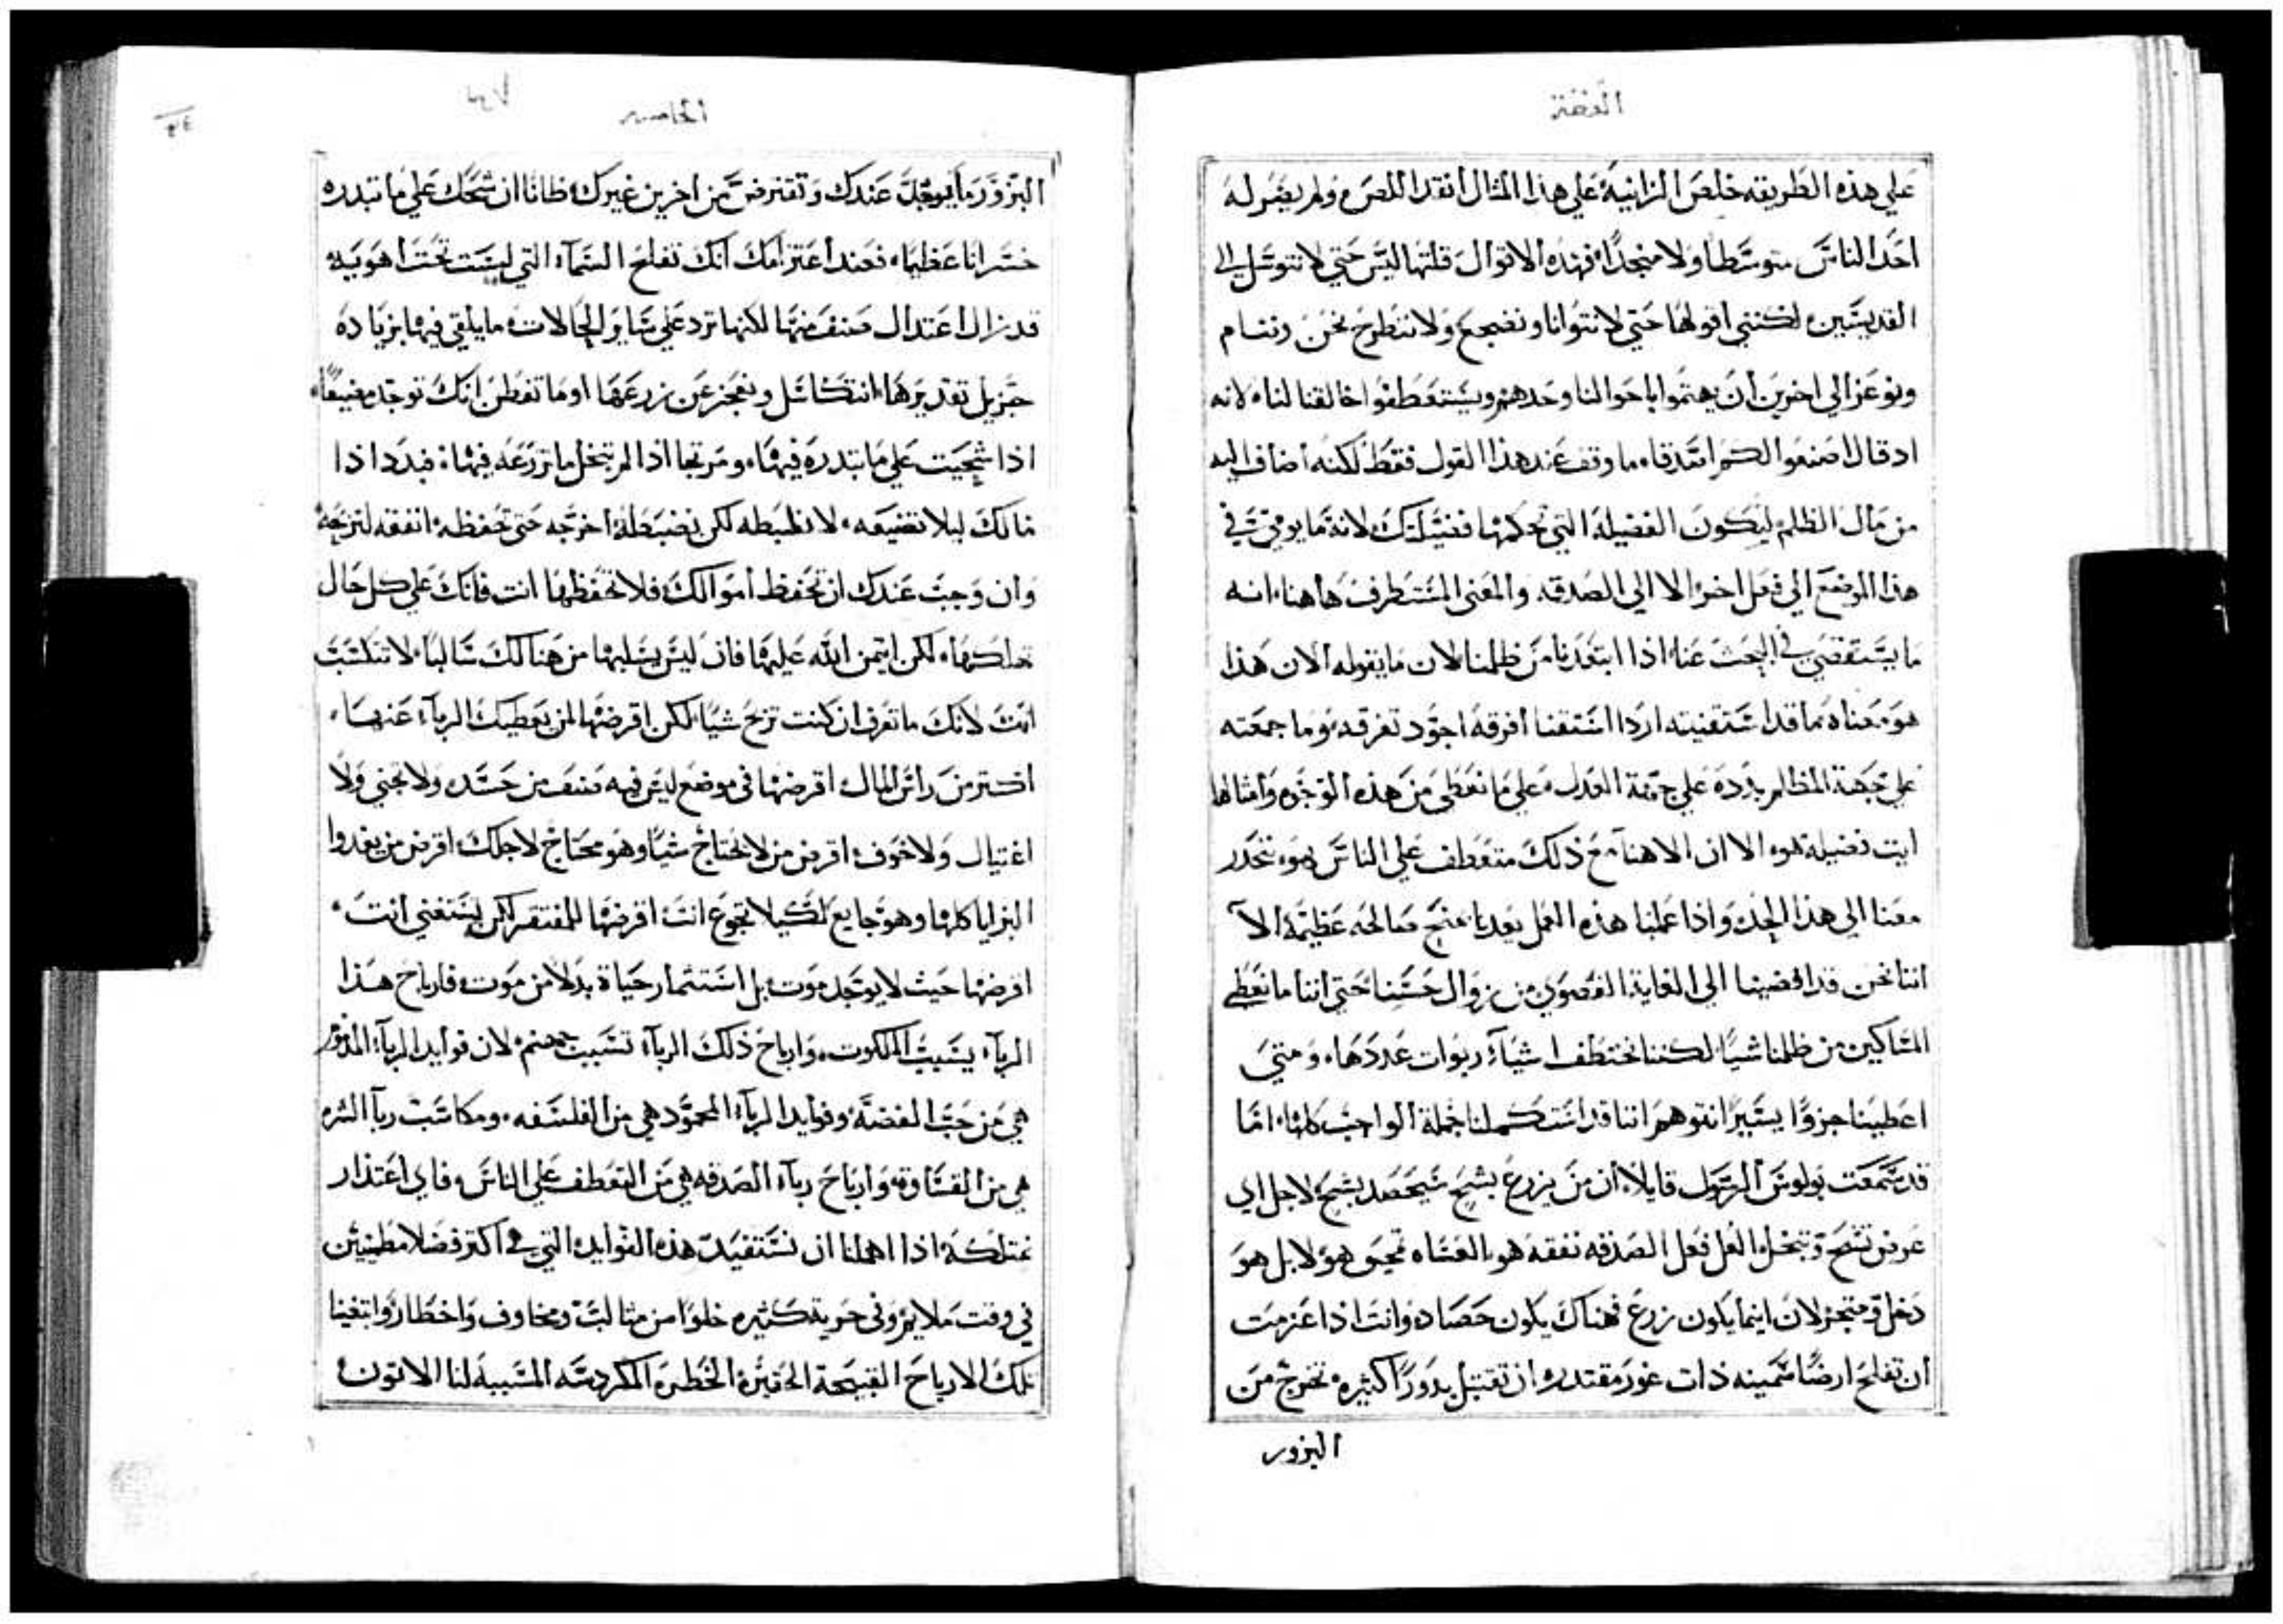 العظة
علي هذه الطريقه خلص الزانية علي هذا المثال انقد اللص ولم يصر له
احد الناس متوسطا ولا منجدا فهذه الاقوال قلتها ليس حتي لا نتوسل الي
القديسين لكنني اقولها حتي لا نتوانا ونضجع ولا ننطرح نحن وننام
ونوعز الي اخرين ان يهتموا باحوالنا وحدهم ويستعطفوا خالقنا لنا لانه
اد قال اصنعوا لكم اصدقاء ما وقف عند هذا القول فقط لكنه اضاف اليه
من مال الظلم ليكون الفضيلة التي تحكمها فضيلتك لانه ما يومي في
هذا الموضع الي فعل اخر الا الي الصدقه والمعني المستطرف هاهنا انه
ما يستقصي في البحث عنا اذا ابتعدنا من ظلمنا لان ما يقوله الان هذا
هو معناه ما قد استقنيته اردا استقنا افرقه اجود تفرقه وما جمعته
علي جهة المظالم بدده علي جهة العدل علي ما نعطي من هذه الوجوه وامثالها
ايت فضيلة هو الا ان الاهنا مع ذلك متعطف علي الناس فهو ينحدر
معنا الي هذا الحد واذا عملنا هذه العمل يعدنا بمنح صالحه عظيمة الا
اننا نحن قد افضينا الي الغاية القصوي من زوال حسنا حتي اننا ما نعطي
المساكين من ظلمنا شيا لكننا نختطف اشياء ربوات عددها ومتي
اعطينا جزوا يسيرا نتوهم اننا قد استكملنا جملة الواجب كلها اما
قد سمعت بولوس الرسول قايلا ان من يزرع بشح سيحصد بشح لاجل اي
عرض تشح وتبخل العل فعل الصدقه نفقه هو العساه نحيق هو لا بل هو
دخل ومتجر لان اينما يكون زرع فهناك يكون حصاد وانت اذا عزمت
ان تفلح ارضا سمينه ذات غور مقتدره ان تقتبل بدورا كثيره تخرج من
البزور
الخامسه
البزور ما يوجد عندك وتقترض من اخرين غيرك ظانا ان شحك علي ما تبدره
خسرانا عظيما فعند اعتزامك انك تفلح السماء التي ليست تحت اهويه
قد زال اعتدال صنف منها لكنها ترد علي سايو الحالات ما يلقي فيها بزياده
جزيل تقديرها انتكاسل وتعجز عن زرعها او ما تفطن انك توجد مضيعا
اذا شححت علي ما تبدره فيها ومرتجا اذا لم تبخل ما تزرعه فيها فبدد اذا
مالك ليلا تضيعه لا تظبطه لكن تضبطه اخرجه حتي تحفظه انفقه لتربحه
وان وجب عندك ان تحفظ اموالك فلا تحفظها انت فانك علي كل حال
تهلكها لكن ايتمن الله عليها فان ليس يسلبها من هنالك سالبا لا تتكسب
انت لانك ما تعرف ان كنت تربح شيا لكن اقرضها لمن يعطيك الرباء عنها
اكتر من راس المال اقرضها في موضع ليس فيه صنف من حسد ولا تجني ولا
اغتيال ولا خوف اقرض من لا يحتاج شيا وهو محتاج لاجلك اقرض من يغدوا
البرايا كلها وهو جايع لكيلا تجوع انت اقرضها للمفتقر لكي يستغني انت
اقرضها حيث لا يوجد موت بل استثمار حياة بدلا من موت فارباح هذا
الرباء يسبب الملكوت وارباح ذلك الرباء تسبب جهنم لان فوايد الرباء المذموم
هي من حب الفضة وفوايد الرباء المحمود هي من الفلسفه ومكاسب ربا الشره
هي من القساوة وارباح رباء الصدقه هي من التعطف علي الناس فاي اعتذار
نمتلكه اذا اهملنا ان نستفيد هذه الفوايد التي هي اكتر فضلا مطمئنين
في وقت ملايم وفي حرية كثيره خلوا من مثالب ومخاوف واخطار وابتغينا
تلك الارباح القبيحة الحقيرة الخطره المكردسه المسببه لنا الاتون